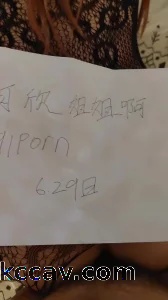 可欣姐姐啊
Porn
6.29日
kccav.com